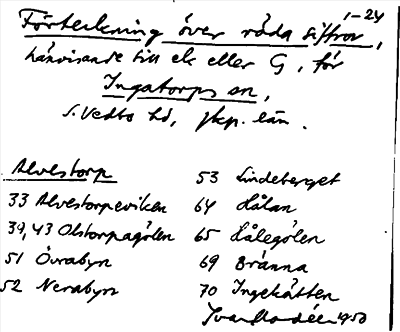 1-24
Förteckning över röda siffror,
hänvisande till ek eller G, för
Ingatorps sn,
S. Vedbo hd, jkp. län.
Alvestorp
33 Alvestorpeviken
39,43 Olstorpagölen
51 Övrabyn
52 Nerabyn
53 Lindeberget
64 Hålan
65 Hålegölen
69 Bränna
70 Ingekätten
Ivar 1950